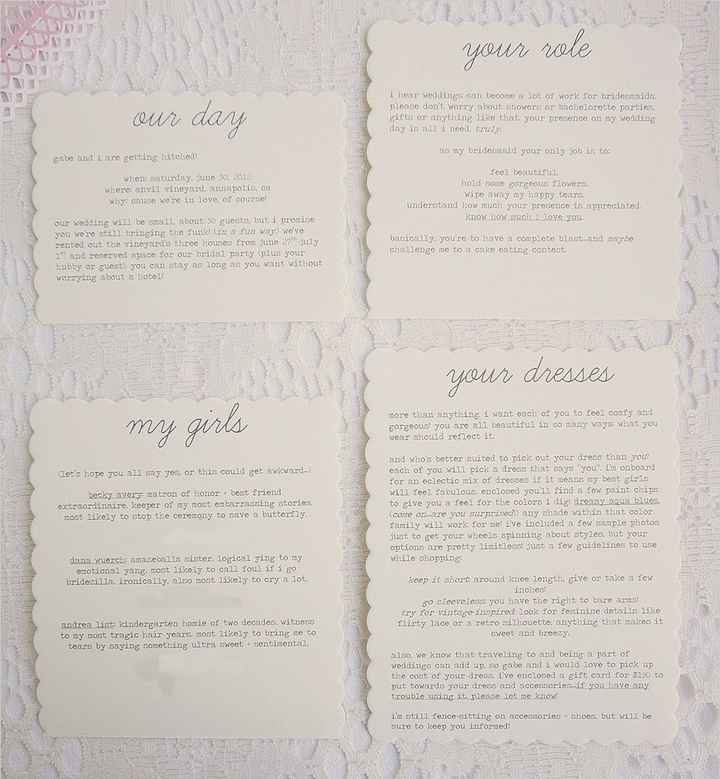 our day
gabe and i are getting hitched!
when: saturday, june 30, 2012
where: anvil vineyard, annapolis, ca
why: cause we're in love, of course!
our wedding will be small, about 50 guests, but i promise
you we're still bringing the funk! (in a fun way) we've
rented out the vineyard's three houses from june 27th-july
1st and reserved space for our bridal party (plus your
hubby or guest). you can stay as long as you want without
worrying about a hotel!
your role
i hear weddings can become a lot of work for bridesmaids.
please don't worry about showers or bachelorette parties,
gifts or anything like that. your presence on my wedding
day is all i need, truly.
as my bridesmaid your only job is to:
feel beautiful.
hold some gorgeous flowers.
wipe away my happy tears.
understand how much your presence is appreciated.
know how much i love you.
basically, you're to have a complete blast...and maybe
challenge me to a cake eating contest.
my girls
(let's hope you all say yes, or this could get awkward...)
becky avery: matron of honor + best friend
extraordinaire. keeper of my most embarrassing stories.
most likely to stop the ceremony to save a butterfly.
dana wuerch: amazeballs sister. logical ying to my
emotional yang. most likely to call foul if i go
bridezilla. ironically, also most likely to cry a lot.
andrea list: kindergarten homie of two decades. witness
to my most tragic hair years. most likely to bring me to
tears by saying something ultra sweet + sentimental.
your dresses
more than anything, i want each of you to feel comfy and
gorgeous! you are all beautiful in so many ways. what you
wear should reflect it.
and who's better suited to pick out your dress than you!
each of you will pick a dress that says "you". i'm onboard
for an eclectic mix of dresses if it means my best girls
will feel fabulous. enclosed you'll find a few paint chips
to give you a feel for the colors i dig: dreamy aqua blues.
(come on...are you surprised?) any shade within that color
family will work for me! i've included a few sample photos
just to get your wheels spinning about styles, but your
options are pretty limitless! just a few guidelines to use
while shopping:
keep it short: around knee length, give or take a few
inches!
go sleeveless: you have the right to bare arms!
try for vintage-inspired: look for feminine details like
flirty lace or a retro silhouette. anything that makes it
sweet and breezy.
also, we know that traveling to and being a part of
weddings can add up, so gabe and i would love to pick up
the cost of your dress. i've enclosed a gift card for $150 to
put towards your dress and accessories...if you have any
trouble using it, please let me know!
i'm still fence-sitting on accessories + shoes, but will be
sure to keep you informed!